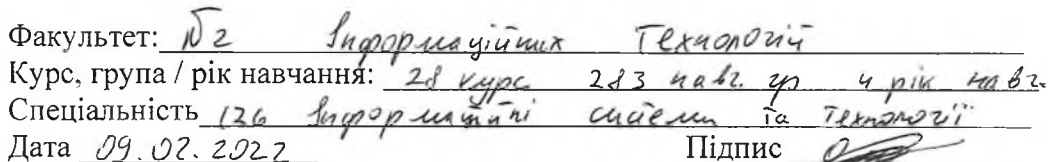 Факультет: №2 Інформаційних Технологій
Курс, група / рік навчання: 28 курс 283 навч. гр 4 рік навч.
Спеціальність 126 Інформаційні системи та Технології
Дата 09.02.2022 Підпис